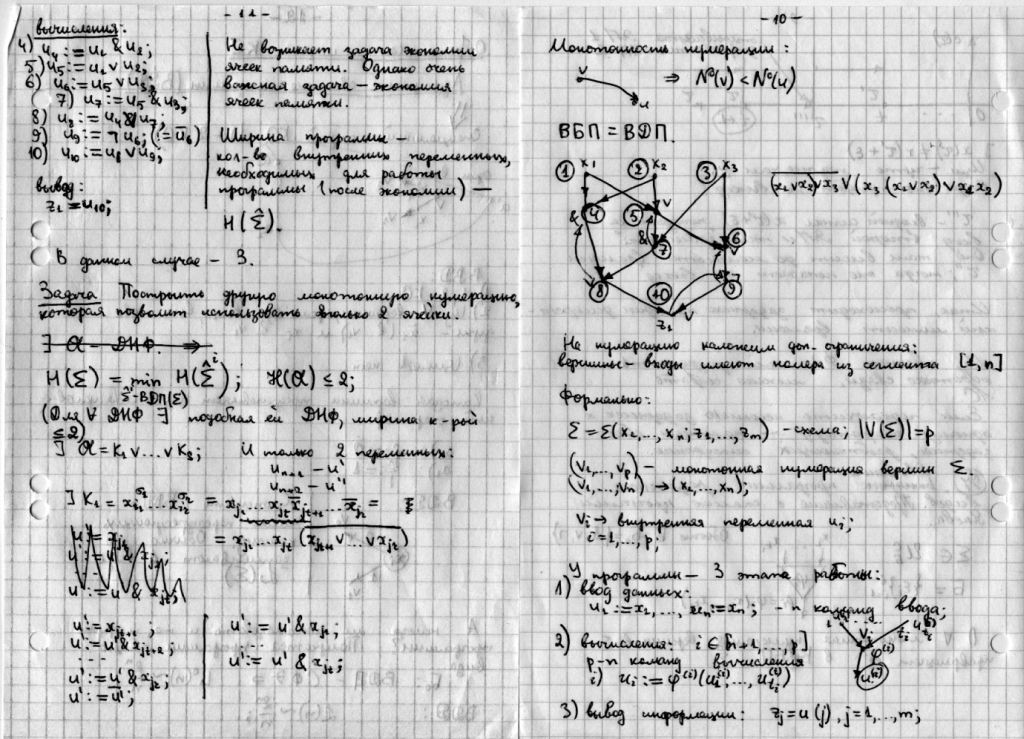 - 11 -
вычисления:
4) u₄ := u₁ & u₂;
5) u₅ := u₁ ∨ u₂;
6) u₆ := u₅ ∨ u₃;
7) u₇ := u₅ & u₃;
8) u₈ := u₄ ∨ u₇;
9) u₉ := ¬u₆; (:= u̅₆)
10) u₁₀ := u₈ ∨ u₉;
вывод:
z₁ = u₁₀;
Не возникает задача экономии
ячеек памяти. Однако очень
важная задача – экономия
ячеек памяти.
Ширина программы –
кол-во внутренних переменных,
необходимых для работы
программы (после экономии) —
H(Σ̂).
В данном случае – 3.
Задача Построить другую монотонную нумерацию,
которая позволит использовать только 2 ячейки.
H(Σ) = min H(Σ̂ⁱ); H(α) ≤ 2;
Σ̂ⁱ-ВДП(Σ)
(Для ∀ ДНФ ∃ подобная ей ДНФ, ширина к-рой
≤ 2)
∃ α = K₁ ∨ … ∨ Kₛ; И только 2 переменных:
uₙ₊₁ – u'
uₙ₊₂ – u''
= x_{j₁} … x_{jt} (x_{jt+1} ∨ … ∨ x_{jr})
u' := x_{jt+1};
u' := u' & x_{jt+2};
. . .
u' := u̅';
u' := u' & x_{j1};
. . .
u' := u' & x_{jt};
- 10 -
Монотонность нумерации:
v
u
⇒ N°(v) < N°(u)
ВБП = ВДП.
x₁ x₂ x₃
1 2 3
& 4 5 ∨ & 7 6 ∨
∨ 8 10 ∨ 9 ¬
z₁
На нумерацию наложим доп. ограничения:
вершины – входы имеют номера из сегмента [1, n]
Формально:
Σ = Σ(x₁, …, xₙ; z₁, …, zₘ) – схема; |V(Σ)| = p
(v₁, …, v_p) – монотонная нумерация вершин Σ.
(v₁, …, vₙ) → (x₁, …, xₙ);
vᵢ → внутренняя переменная uᵢ;
i = 1, …, p;
У программы – 3 этапа работы:
1) ввод данных:
u₁ := x₁, …, uₙ := xₙ; – n команд ввода;
2) вычисления: i ∈ [n+1, …, p]
p-n команд вычисления
3) вывод информации: z_j = u(j), j = 1, …, m;